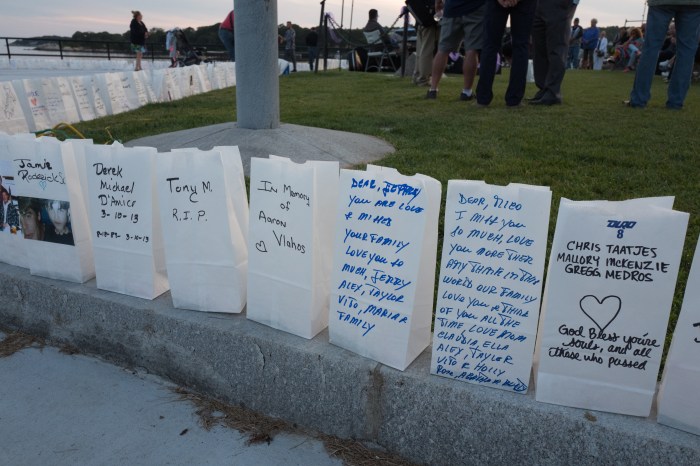 Jamie
Roderick
Derek
Michael
D'Amico
3-10-13
Tony M.
R.I.P.
In Memory
of
Aaron
Vlahos
Dear, Jerry
You are LOVE
& MISSES
YOUR FAMILY
LOVE YOU to
much, Jerry
Alex, Taylor
Vito, Maria &
Family
Dear,
I miss you
to much, LOVE
YOU MORE THEN
ANY think in this
WORLD OUR FAMILY
LOVE YOU & think
OF YOU ALL the
time, LOVE
CLAUDIA, ELLA
Alex, TAYLOR
VITO & HOLLY
8
CHRIS TAATJES
MALLORY MCKENZIE
GREGG MEDROS
God Bless you're
souls, and all
those who passed